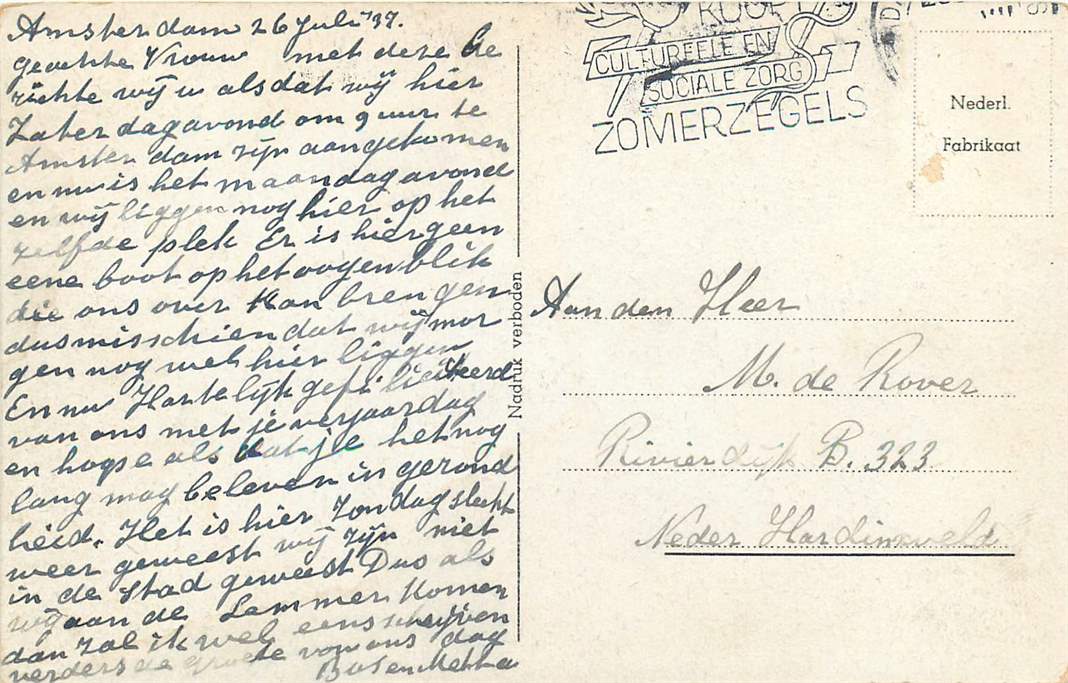 Amsterdam 26 Juli '37.
geachte Vrouw met deze be
richte wij u als dat wij hier
Zaterdagavond om 9 uur te
Amsterdam zijn aangekomen
en nu is het maandagavond
en wij liggen nog hier op het
zelfde plek Er is hier geen
eene boot op het oogenblik
die ons over kan brengen
dus misschien dat wij mor
gen nog wel hier liggen
En nu Hartelijk gefeliciteerd
van ons met je verjaardag
en hopse als dat je het nog
lang mag beleven in gezond
heid. Het is hier Zondag slecht
weer geweest wij zijn niet
in de stad geweest Dus als
wij aan de Lemmer komen
dan zal ik wel eens schrijven
verders de groete van ons dag
Bas en
KOOPT
CULTUREELE EN
SOCIALE ZORG
ZOMERZEGELS
Nederl.
Fabrikaat
Nadruk verboden
Aan den Heer
M. de Rover
Rivierdijk B. 323
Neder Hardinxveld